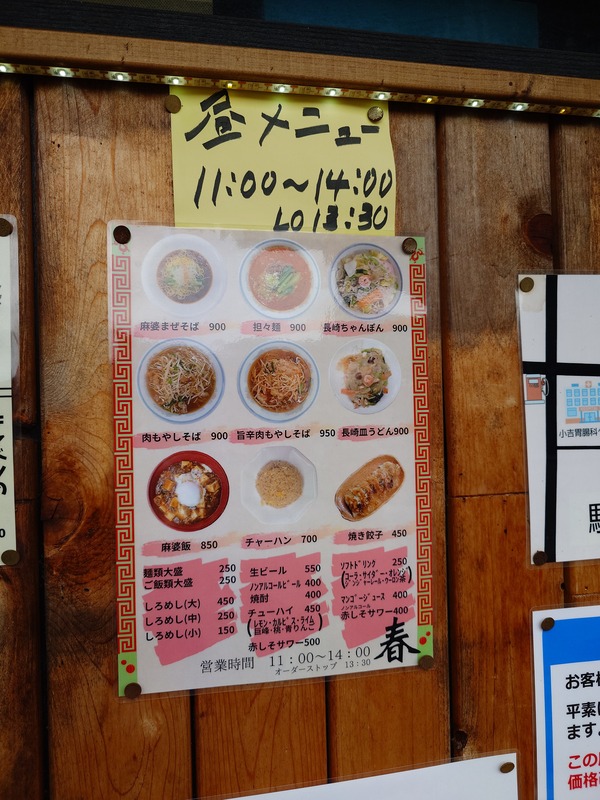 昼メニュー
11:00〜14:00
LO 13:30
麻婆まぜそば 900
担々麺 900
長崎ちゃんぽん 900
肉もやしそば 900
旨辛肉もやしそば 950
長崎皿うどん900
麻婆飯 850
チャーハン 700
焼き餃子 450
麺類大盛 250
ご飯類大盛 250
しろめし(大) 450
しろめし(中) 250
しろめし(小) 150
生ビール 550
ノンアルコールビール 400
焼酎 400
チューハイ 450
(レモン・カルピス・ライム
巨峰・桃・青りんご)
赤しそサワー500
ソフトドリンク 250
(コーラ・サイダー・オレンジ
ジンジャーレール・ウーロン茶)
マンゴージュース 400
ノンアルコール
赤しそサワー400
春
営業時間 11:00〜14:00
オーダーストップ 13:30
小吉胃腸科
お客様
平素は
ます。
この
価格